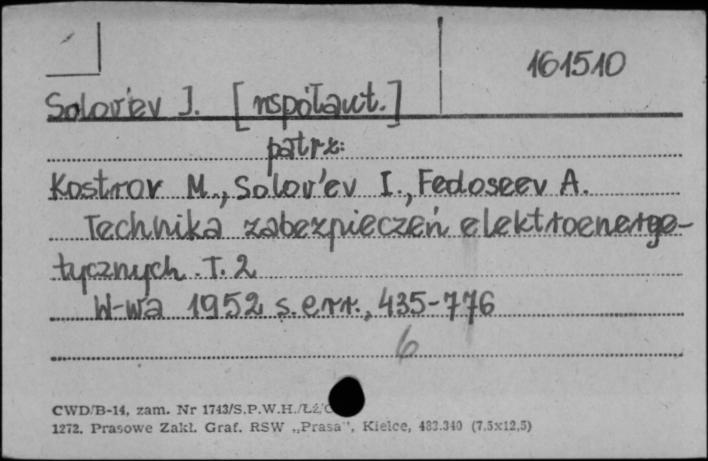 161510
Solov'ev J. [współaut.]
patrz:
Kostrov M., Solov'ev I., Fedoseev A.
Technika zabezpieczeń elektroenerge-
tycznych. T. 2
W-wa 1952 s. err., 435-776
6
CWD/B-14, zam. Nr 1743/S.P.W.H./Łź/
1272. Prasowe Zakł. Graf. RSW „Prasa", Kielce, 483.340 (7,5x12,5)